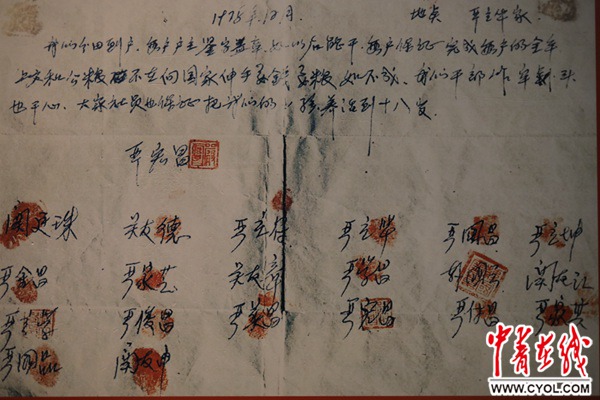 1978年12月. 地点 严立华家
我们分田到户, 每户户主签字盖章, 如以后能干, 每户保证完成每户的全年
上交和公粮 不在向国家伸手要钱要粮 如不成, 我们干部作牢刹头
也干心, 大家社员也保证把我们的小孩养活到十八岁.
严宏昌
关廷珠 关友德 严立符 严立华 严国昌 严立坤
严金昌 严家芝 关友章 严学昌 韩国云 关友江
严立学 严俊昌 严美昌 严宏昌 严付昌 严家其
严国品 关友申
中青在线
WWW.CYOL.COM